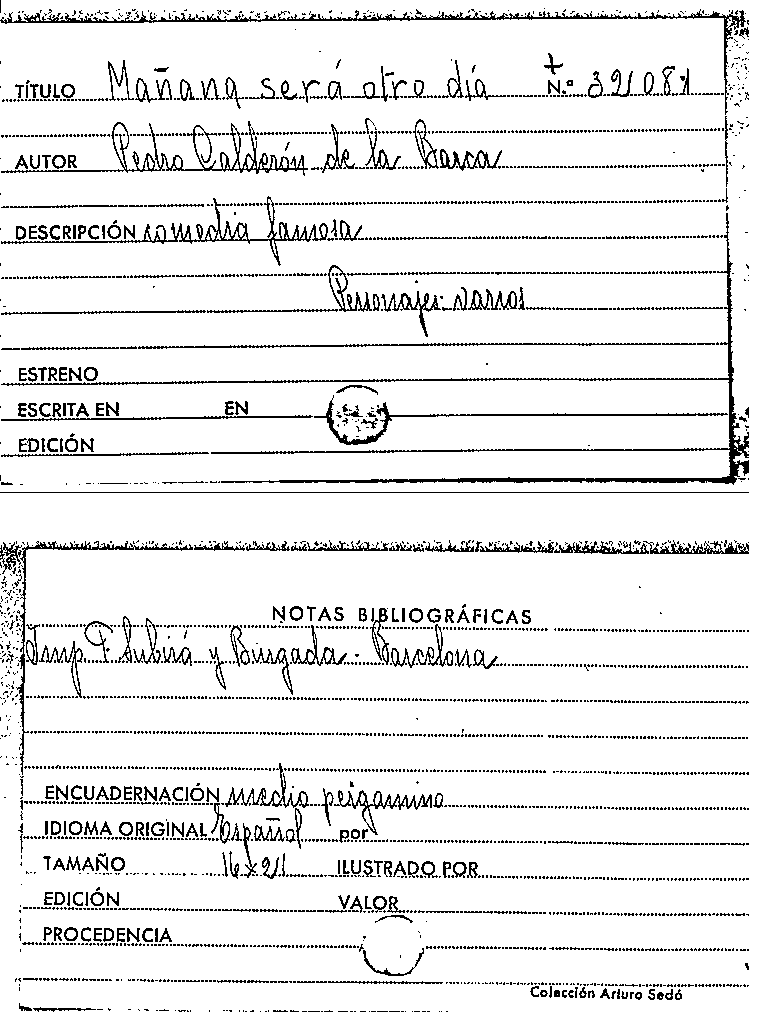 TÍTULO Mañana será otro día N.º
AUTOR Pedro Calderón de la Barca
DESCRIPCIÓN comedia famosa
Personajes: varios
ESTRENO
ESCRITA EN EN
EDICIÓN
NOTAS BIBLIOGRÁFICAS
Imp. F. Subirá y Burgada - Barcelona
ENCUADERNACIÓN medio pergamino
IDIOMA ORIGINAL Español por
TAMAÑO 16x21 ILUSTRADO POR
EDICIÓN VALOR
PROCEDENCIA
Colección Arturo Sedó